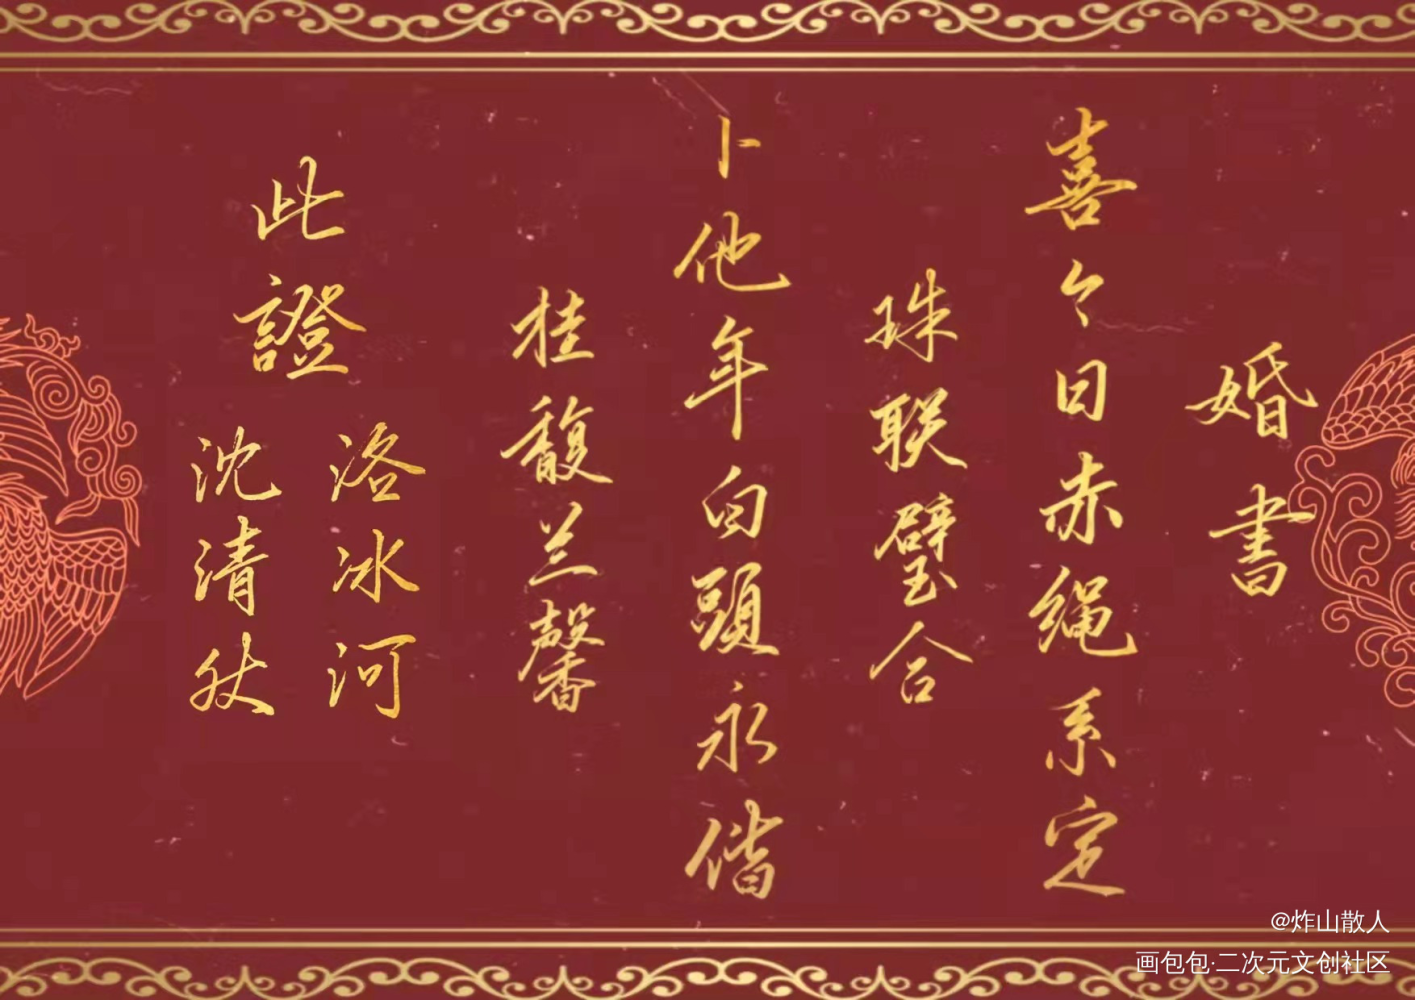 婚書
喜今日赤绳系定
珠联璧合
卜他年白頭永偕
桂馥兰馨
此證
洛冰河
沈清秋
@炸山散人
画包包·二次元文创社区